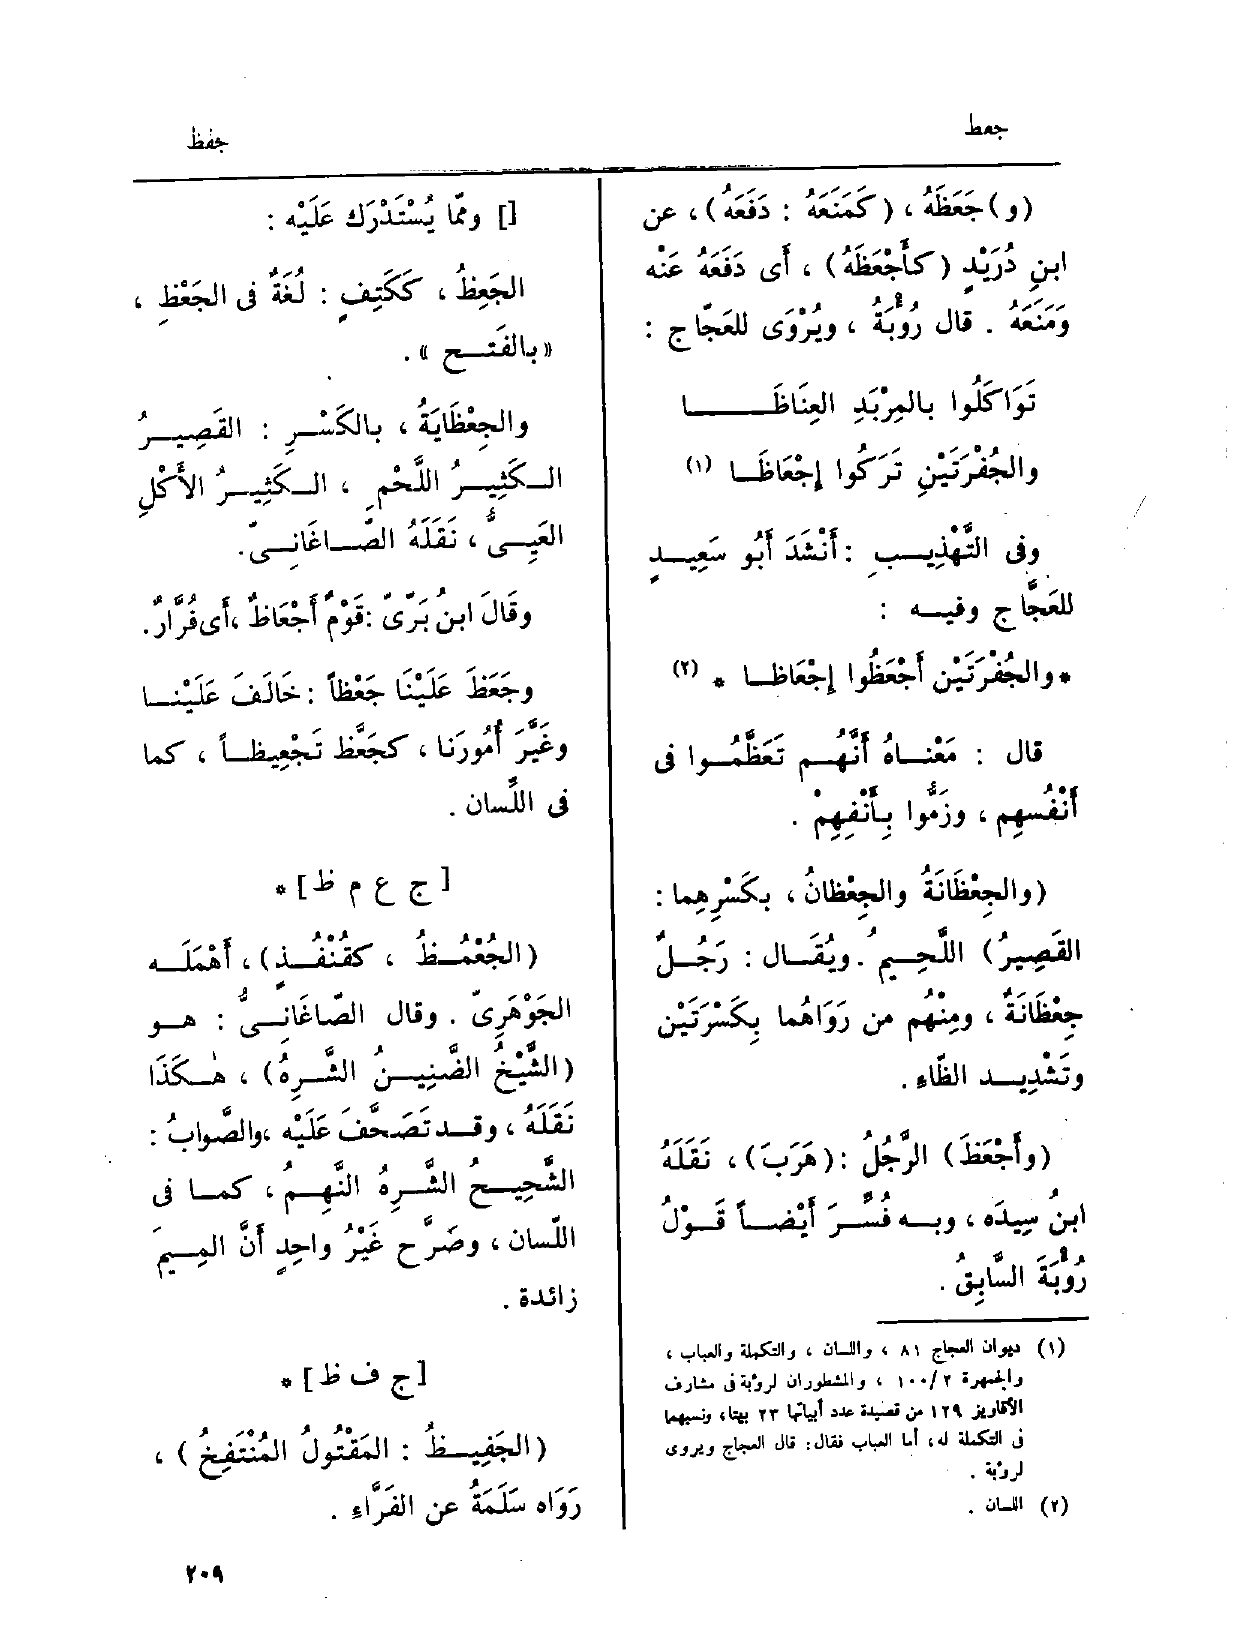 جعظ
جفظ
(و) جَعَظَهُ ، (كَمَنَعَهُ : دَفَعَهُ) ، عن
ابنِ دُرَيْدٍ (كأَجْعَظَهُ) ، أَى دَفَعَهُ عَنْه
وَمَنَعَهُ . قال رُوبَةُ ، ويُرْوَى للعَجّاج :
تَوَاكَلُوا بالمِرْبَدِ العِنَاظَــا
والجُفْرَتَيْنِ تَرَكُوا إِجْعَاظَــا (١)
وفى التَّهْذِيــبِ : أَنْشَدَ أَبُو سَعِيــدٍ
للعَجَّاج وفيــه :
*والجُفْرَتَيْن أَجْعَظُوا إِجْعَاظــا * (٢)
قال : مَعْنــاهُ أَنَّهُــم تَعَظَّمُــوا فى
أَنْفُسهِم ، وزَمُّوا بِأَنْفِهِمْ .
(والجِعْظَانَةُ والجِعْظانُ ، بكَسْرِهِما :
القَصِيرُ) اللَّحِيــمُ . ويُقَــال : رَجُــلٌ
جِعْظَانَةٌ ، ومِنْهُم من رَوَاهُما بِكَسْرَتَيْن
وتَشْدِيــد الظّاءِ .
(وأَجْعَظَ) الرَّجُلُ : (هَرَبَ) ، نَقَلَهُ
ابنُ سِيدَه ، وبــه فُسِّــرَ أَيْضــاً قَــوْلُ
رُوبَةَ السّابِقُ .
(١) ديوان العجاج ٨١ ، واللسان ، والتكملة والعباب ،
والجمهرة ٢/ ١٠٠ ، والمشطوران لرؤبة فى مشارف
الأقاويز ١٢٩ من قصيدة عدد أبياتها ٢٣ بيتا، ونسبهما
فى التكملة له، أما العباب فقال: قال العجاج ويروى
لرؤبة .
(٢) اللسان .
[] وممّا يُسْتَدْرَك عَلَيْه :
الجَعِظُ ، ككَتِفٍ : لُغَةٌ فى الجَعْظِ ،
« بالفَتــح » .
والجِعْظَايَةُ ، بالكَسْــرِ : القَصِيــرُ
الــكَثِيــرُ اللَّحْمِ ، الــكَثِيــرُ الأَكْلِ
العَيِــىُّ ، نَقَلَهُ الصّــاغَانِــىّ.
وقَالَ ابنُ بَرّىّ : قَوْمٌ أَجْعَاظٌ ، أَى فُرَّارٌ.
وجَعَظَ عَلَيْنَا جَعْظاً : خَالَفَ عَلَيْنــا
وغَيَّرَ أُمُورَنا ، كجَعَّظ تَجْعِيظــاً ، كما
فى اللِّسان .
[ ج ع م ظ ] *
(الجُعْمُــظُ ، كقُنْفُــذٍ) ، أَهْمَلَــه
الجَوْهَرِىّ . وقال الصّاغَانِــىُّ : هــو
(الشَّيْخُ الضَّنِيــنُ الشَّــرِهُ) ، هٰــكَذَا
نَقَلَهُ ، وقــد تَصَحَّفَ عَلَيْه ، والصَّوابُ :
الشَّحِيــحُ الشَّــرِهُ النَّهِــمُ ، كمــا فى
اللسّان ، وصَرَّح غَيْرُ واحِدٍ أَنَّ المِيــمَ
زائدة .
[ ج ف ظ ] *
(الجَفِيــظُ : المَقْتُولُ المُنْتَفِخُ ) ،
رَوَاه سَلَمَةُ عن الفَرّاءِ .
٢٠٩